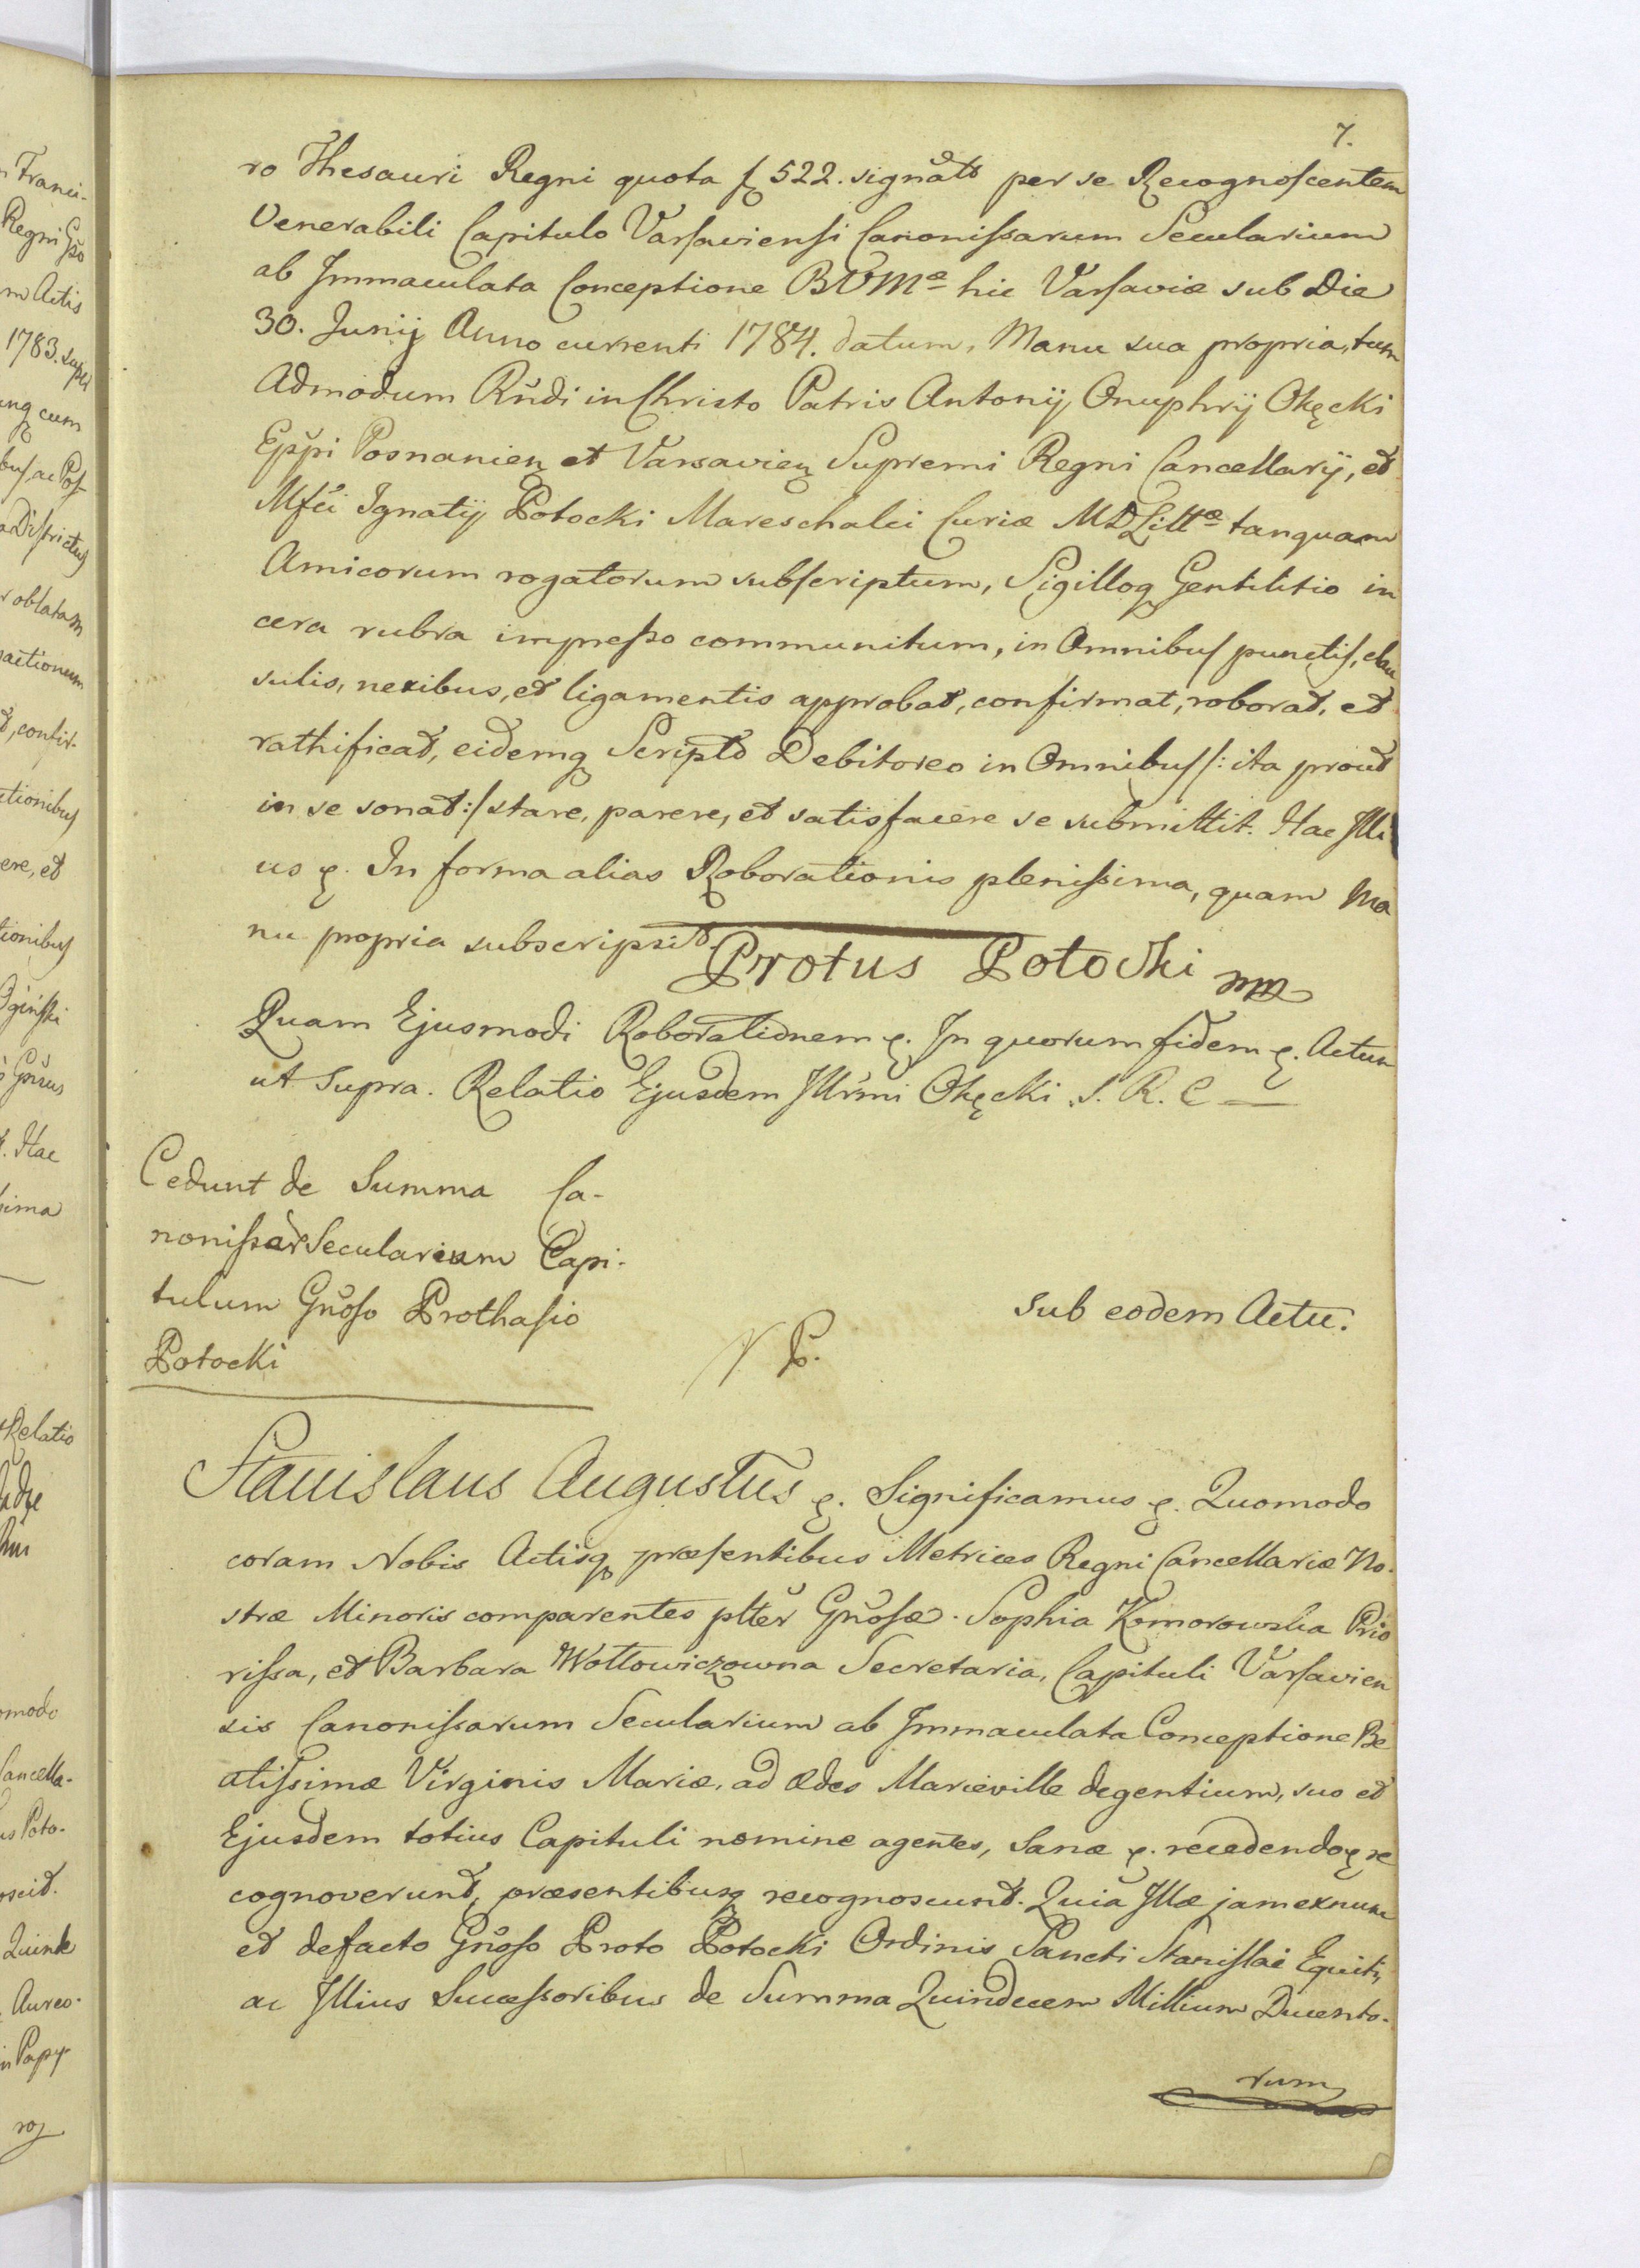 7.
ro Thesauri Regni quota ƒ 522. signatō per se Recognoscentem
Venerabili Capitulo Varsaviensi Canonissarum Secularium
ab Immaculata Conceptione BVMæ hic Varsaviæ sub Die
30. Junij Anno currenti 1784. datum, Manu sua propria, tum
Admodum Rndi in Christo Patris Antonij Onuphrij Okęcki
Eppi Posnanien et Varsavien Supremi Regni Cancellarij, et
Mfci Ignatij Potocki Mareschalci Curiæ MDLittæ tanquam
Amicorum rogatorum subscriptum, Sigilloq Gentilitio in
cera rubra impresso communitum, in Omnibus punctis, clau
sulis, nexibus, et ligamentis approbat, confirmat, roborat, et
rathificat, eidemq Scripto Debitoreo in Omnibus /: ita prout
in se sonat :/ stare, parere, et satisfacere se submittit. Hac Illi
us p. In forma alias Roborationis plenissima, quam Ma
nu propria subscripsit.
Protus Potocki mp
Quam Ejusmodi Roborationem p. In quorum fidem p. Actum
ut supra. Relatio Ejusdem Illrmi Okęcki S. R. C
Cedunt de Summa Ca-
nonissar Secularium Capi-
tulum Gnoso Prothasio
Potocki
sub eodem Actu.
Stanislaus Augustus p. Significamus p. Quomodo
coram Nobis Actisq præsentibus Metrices Regni Cancellariæ No-
stræ Minoris comparentes plter Gnosæ. Sophia Komorowska Prio
rissa, et Barbara Wołłowiczowna Secretaria, Capituli Varsavien
sis Canonissarum Secularium ab Immaculata Conceptione Be
atissimæ Virginis Mariæ, ad Ædes Marieville degentium, suo et
Ejusdem totius Capituli nomine agentes, Sanæ p. recedendo p re
cognoverunt, præsentibusq recognoscunt. Quia Illæ jam exnunc
et defacto Gnoso Proto Potocki Ordinis Sancti Stanislai Equiti,
ac Illius Successoribus de Summa Quindecem Millium Ducento-
rum